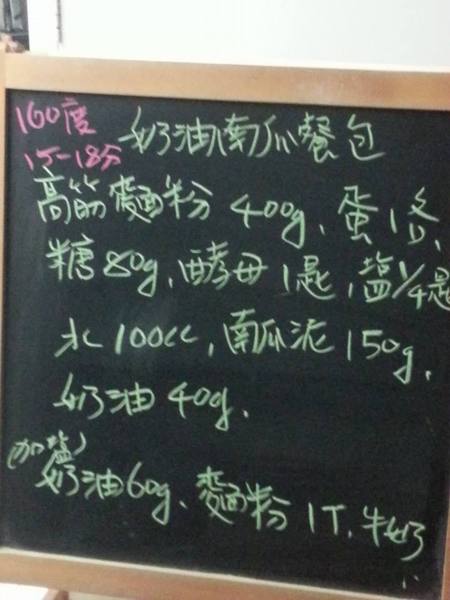 160度
15-18分
奶油南瓜餐包
高筋麵粉 400g、蛋1各、
糖80g、酵母1匙,塩1/4匙
水100cc,南瓜泥150g、
奶油40g、
(加塩)
奶油60g、麵粉1T、牛奶